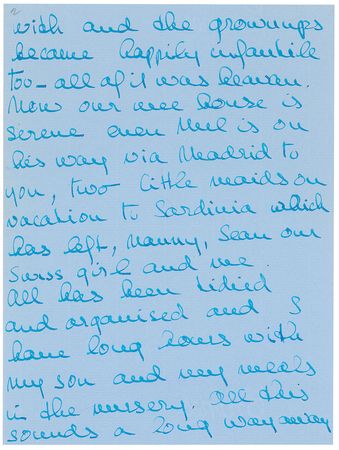 2
with and the grownups
became happily infantile
too – all of it was heaven.
Now our wee house is
serene even Mel is on
his way via Madrid to
you, two little maids on
vacation to Sardinia which
has left, Nanny, Sean our
Swiss girl and me.
All has been tidied
and organised and I
have long hours with
my son and my meals
in the nursery. All this
sounds a long way away